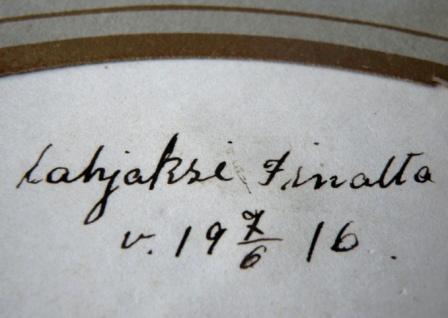 Lahjaksi Finalta
v. 19 7/6 16.